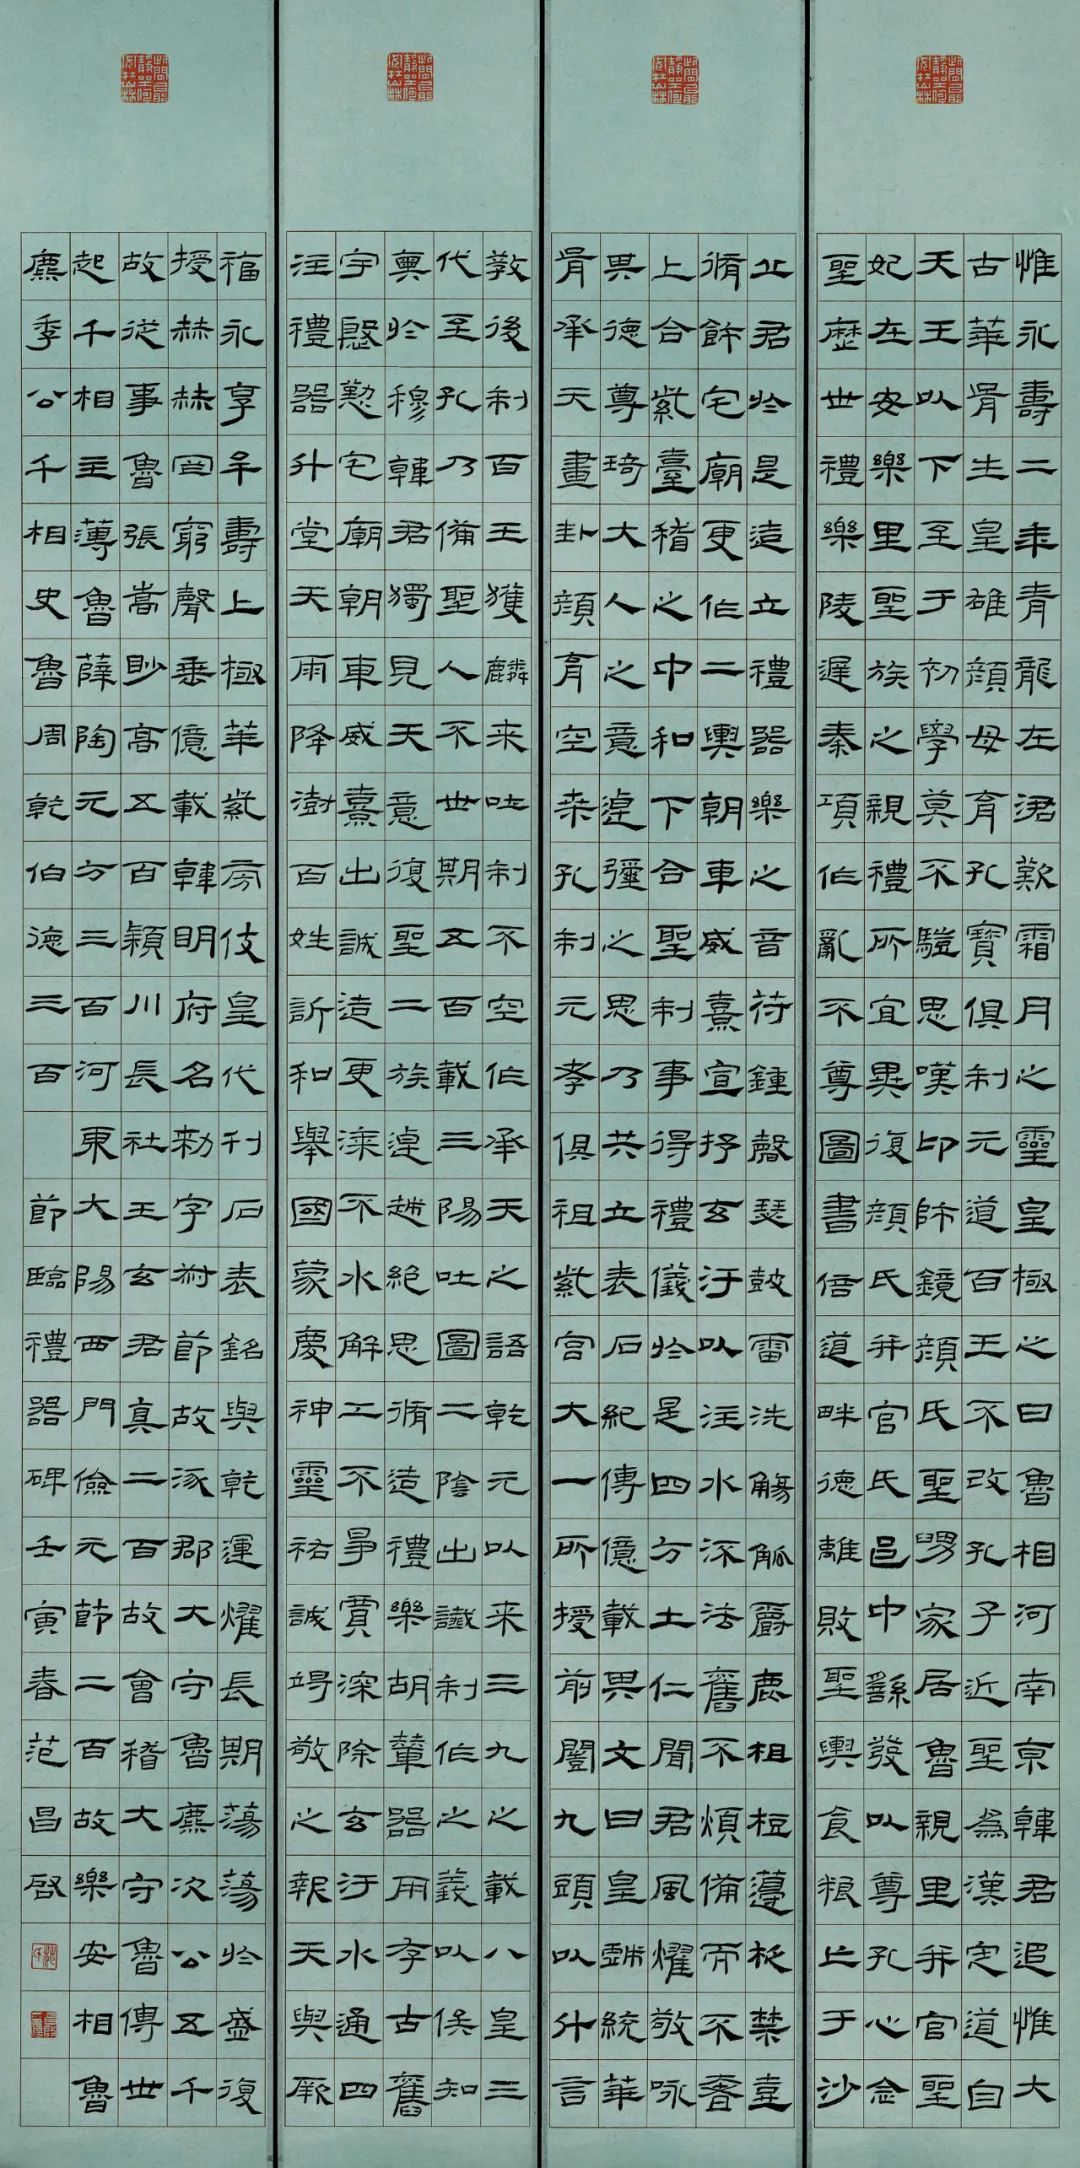 惟永壽二年青龍在涒歎霜月之靈皇極之日魯相河南京韓君追惟大
古華胥生皇雄顏母育孔寶俱制元道百王不改孔子近聖為漢定道自
天王以下至于初學莫不驥思嘆卬師鏡顏氏聖舅家居魯親里并官聖
妃在安樂里聖族之親禮所宜異復顏氏并官氏邑中繇發以尊孔心念
聖歷世禮樂陵遲秦項作亂不尊圖書倍道畔德離敗聖輿食糧亡于沙
丘君於是造立禮器樂之音符鍾磬瑟鼓雷洗觴觚爵鹿柤梪籩柉禁壺
脩飾宅廟更作二輿朝車威熹宣抒玄汙以注水流法舊不煩備而不奢
上合紫臺稽之中和下合聖制事得禮儀於是四方土仁聞君風燿敬咏
其德尊琦大人之意逴彌之思乃共立表石紀傳億載其文曰皇戲統華
胥承天畫卦顏育空桑孔制元孝俱祖紫宮大一所授前闓九頭以升言
教後制百王獲麟來吐制不空作承天之語乾元以來三九之載八皇三
代至孔乃備聖人不世期五百載三陽吐圖二陰出讖制作之義以俟知
奧於穆韓君獨見天意復聖二族逴越絕思脩造禮樂胡輦器用存古舊
宇慇懃宅廟朝車威熹出誠造更漆不水解工不爭賈深除玄汙水通四
注禮器升堂天雨降澍百姓訢和舉國蒙慶神靈祐誠竭敬之報天與厥
福永享牟壽上極華紫旁伎皇代刊石表銘與乾運燿長期蕩蕩於盛復
授赫赫罔窮聲垂億載韓明府名勑字叔節故涿郡大守魯麃次公五千
故從事魯張嵩眇高五百穎川長社王玄君真二百故會稽大守魯傅世
起千相主薄魯薛陶元方三百河東大陽西門儉元節二百故樂安相魯
麃季公千相史魯周乾伯德三百 節臨禮器碑壬寅春范昌啟